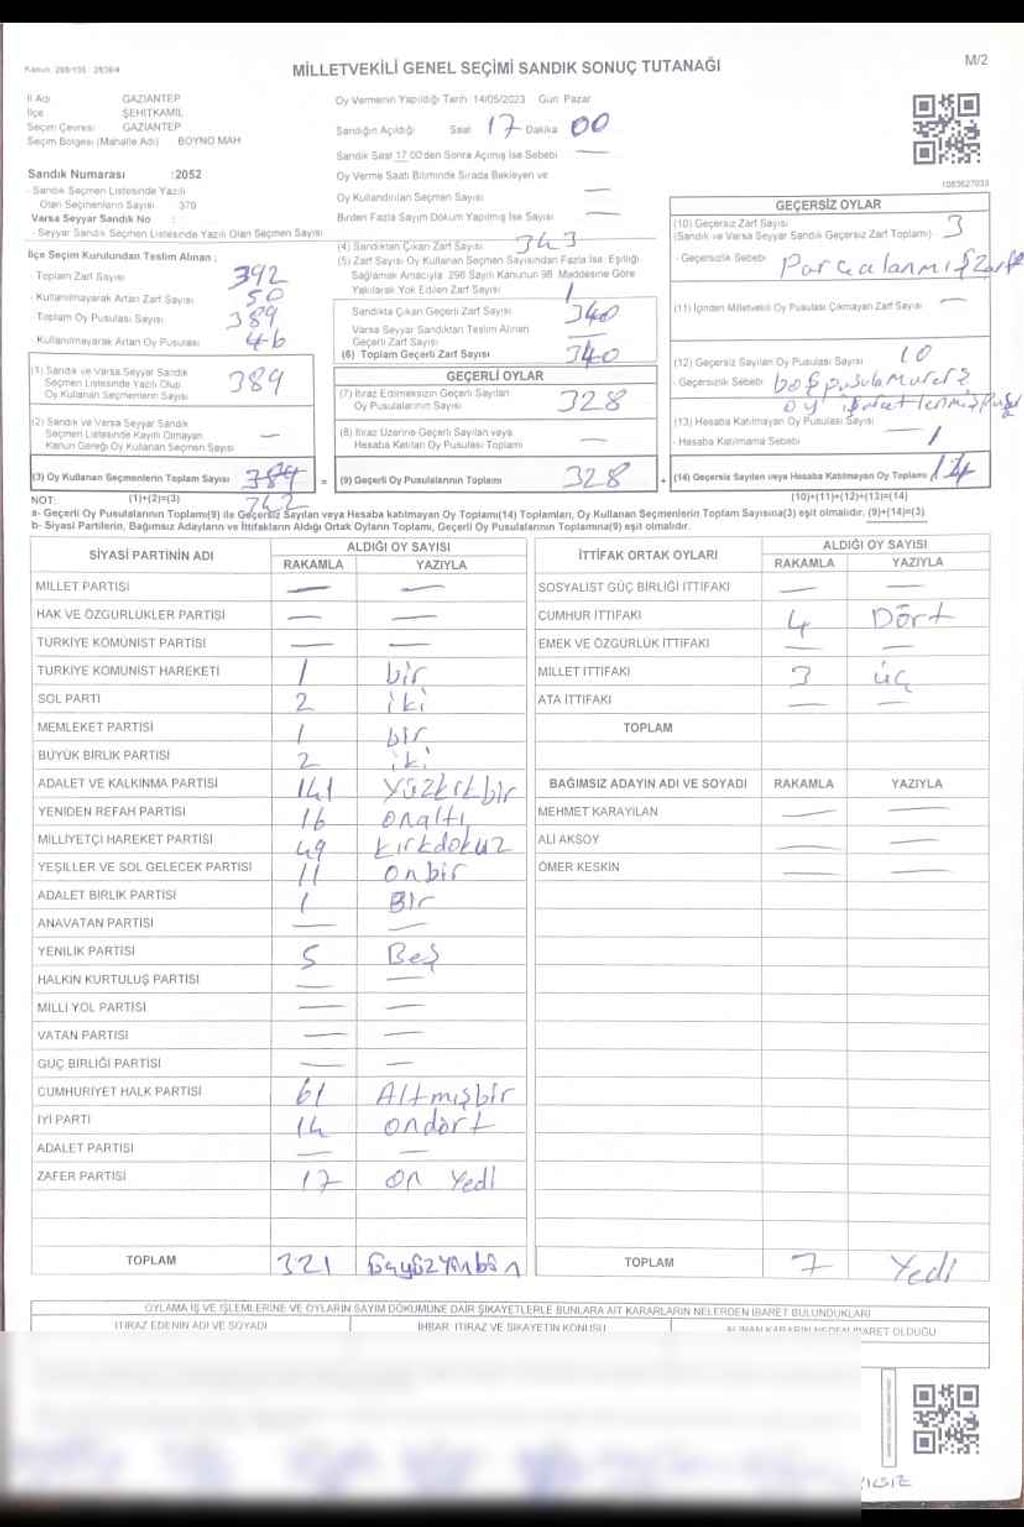 MİLLETVEKİLİ GENEL SEÇİMİ SANDIK SONUÇ TUTANAĞI
M/2
İl Adı GAZİANTEP
İlçe ŞEHİTKAMİL
Seçim Çevresi GAZİANTEP
Seçim Bölgesi (Mahalle Adı) BOYNO MAH
Sandık Numarası :2052
- Sandık Seçmen Listesinde Yazılı
Olan Seçmenlerin Sayısı 379
Varsa Seyyar Sandık No :
- Seyyar Sandık Seçmen Listesinde Yazılı Olan Seçmen Sayısı
Oy Vermenin Yapıldığı Tarih 14/05/2023 Gün Pazar
Sandığın Açıldığı Saat 17 Dakika 00
Sandık Saat 17:00'den Sonra Açılmış İse Sebebi —
Oy Verme Saati Bitiminde Sırada Bekleyen ve
Oy Kullandırılan Seçmen Sayısı —
Birden Fazla Sayım Döküm Yapılmış İse Sayısı —
1083627033
İlçe Seçim Kurulundan Teslim Alınan ;
- Toplam Zarf Sayısı 392
- Kullanılmayarak Artan Zarf Sayısı 50
- Toplam Oy Pusulası Sayısı 389
- Kullanılmayarak Artan Oy Pusulası 46
(1) Sandık ve Varsa Seyyar Sandık
Seçmen Listesinde Yazılı Olup
Oy Kullanan Seçmenlerin Sayısı 389
(2) Sandık ve Varsa Seyyar Sandık
Seçmen Listesinde Kayıtlı Olmayan
Kanun Gereği Oy Kullanan Seçmen Sayısı —
(3) Oy Kullanan Seçmenlerin Toplam Sayısı 389
342
(1)+(2)=(3)
(4) Sandıktan Çıkan Zarf Sayısı 343
(5) Zarf Sayısı Oy Kullanan Seçmen Sayısından Fazla İse, Eşitliği
Sağlamak Amacıyla 298 Sayılı Kanunun 98. Maddesine Göre
Yakılarak Yok Edilen Zarf Sayısı 1
Sandıkta Çıkan Geçerli Zarf Sayısı 340
Varsa Seyyar Sandıktan Teslim Alınan
Geçerli Zarf Sayısı —
(6) Toplam Geçerli Zarf Sayısı 340
GEÇERLİ OYLAR
(7) İtiraz Edilmeksizin Geçerli Sayılan
Oy Pusulalarının Sayısı 328
(8) İtiraz Üzerine Geçerli Sayılan veya
Hesaba Katılan Oy Pusulası Toplamı —
= (9) Geçerli Oy Pusulalarının Toplamı 328
GEÇERSİZ OYLAR
(10) Geçersiz Zarf Sayısı 3
(Sandık ve Varsa Seyyar Sandık Geçersiz Zarf Toplamı)
- Geçersizlik Sebebi Parçalanmış Zarf
(11) İçinden Milletvekili Oy Pusulası Çıkmayan Zarf Sayısı —
(12) Geçersiz Sayılan Oy Pusulası Sayısı 10
- Geçersizlik Sebebi boş pusula
(13) Hesaba Katılmayan Oy Pusulası Sayısı
- Hesaba Katılmama Sebebi 1
+ (14) Geçersiz Sayılan veya Hesaba Katılmayan Oy Toplamı 14
(10)+(11)+(12)+(13)=(14)
NOT:
a- Geçerli Oy Pusulalarının Toplamı(9) ile Geçersiz Sayılan veya Hesaba katılmayan Oy Toplamı(14) Toplamları, Oy Kullanan Seçmenlerin Toplam Sayısına(3) eşit olmalıdır. (9)+(14)=(3)
b- Siyasi Partilerin, Bağımsız Adayların ve İttifakların Aldığı Ortak Oyların Toplamı, Geçerli Oy Pusulalarının Toplamına(9) eşit olmalıdır.
SİYASİ PARTİNİN ADI ALDIĞI OY SAYISI
RAKAMLA YAZIYLA
MİLLET PARTİSİ — —
HAK VE ÖZGÜRLÜKLER PARTİSİ — —
TÜRKİYE KOMÜNİST PARTİSİ — —
TÜRKİYE KOMÜNİST HAREKETİ 1 bir
SOL PARTİ 2 iki
MEMLEKET PARTİSİ 1 bir
BÜYÜK BİRLİK PARTİSİ 2 iki
ADALET VE KALKINMA PARTİSİ 141 yüzkırkbir
YENİDEN REFAH PARTİSİ 16 onaltı
MİLLİYETÇİ HAREKET PARTİSİ 49 kırkdokuz
YEŞİLLER VE SOL GELECEK PARTİSİ 11 onbir
ADALET BİRLİK PARTİSİ 1 Bir
ANAVATAN PARTİSİ — —
YENİLİK PARTİSİ 5 Beş
HALKIN KURTULUŞ PARTİSİ — —
MİLLİ YOL PARTİSİ — —
VATAN PARTİSİ — —
GÜÇ BİRLİĞİ PARTİSİ — —
CUMHURİYET HALK PARTİSİ 61 Altmışbir
İYİ PARTİ 14 ondört
ADALET PARTİSİ — —
ZAFER PARTİSİ 17 on Yedi
TOPLAM 321
İTTİFAK ORTAK OYLARI ALDIĞI OY SAYISI
RAKAMLA YAZIYLA
SOSYALİST GÜÇ BİRLİĞİ İTTİFAKI — —
CUMHUR İTTİFAKI 4 Dört
EMEK VE ÖZGÜRLÜK İTTİFAKI — —
MİLLET İTTİFAKI 3 üç
ATA İTTİFAKI — —
TOPLAM
BAĞIMSIZ ADAYIN ADI VE SOYADI RAKAMLA YAZIYLA
MEHMET KARAYILAN — —
ALİ AKSOY — —
ÖMER KESKİN — —
TOPLAM 7 Yedi
OYLAMA İŞ VE İŞLEMLERİNE VE OYLARIN SAYIM DÖKÜMÜNE DAİR ŞİKAYETLERLE BUNLARA AİT KARARLARIN NELERDEN İBARET BULUNDUKLARI
İTİRAZ EDENİN ADI VE SOYADI İHBAR, İTİRAZ VE ŞİKAYETİN KONUSU ALINAN KARARIN NEDEN İBARET OLDUĞU